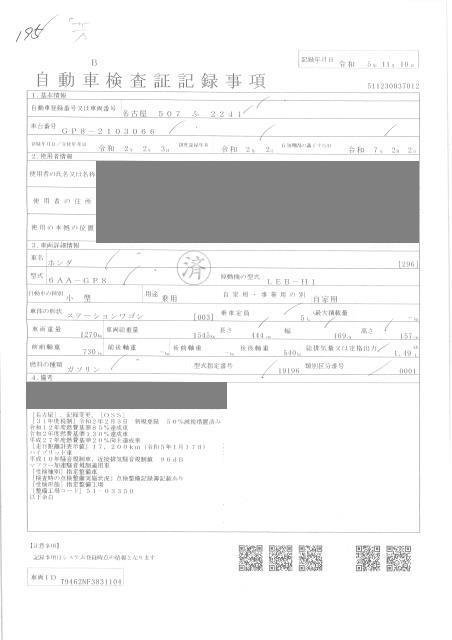 195
B
自動車検査証記録事項
記録年月日 令和 5年 11月 10日
511230037012
1. 基本情報
自動車登録番号又は車両番号 名古屋 507 ふ 2241
車台番号 GP8-2103066
令和 2年 2月 3日 令和 2年 2月 令和 7年 2月 2日
2. 使用者情報
使用者の氏名又は名称
使用者の住所
使用の本拠の位置
3. 車両詳細情報
車名 ホンダ [296]
済
型式 6AA-GP8 原動機の型式 LEB-H1
自動車の種別 小型 用途 乗用 自家用・事業用の別 自家用
車体の形状 ステーションワゴン [003] 乗車定員 5人 最大積載量 -kg
車両重量 1270kg 車両総重量 1545kg 長さ 444cm 幅 169cm 高さ 157cm
前前軸重 730kg 前後軸重 -kg 後前軸重 -kg 後後軸重 540kg 総排気量又は定格出力 1.49L
燃料の種類 ガソリン 型式指定番号 19196 類別区分番号 0001
4. 備考
[名古屋], 記録変更, [OSS]
[31年度税制] 令和2年2月3日 新規登録 50%減税措置済み
令和12年度燃費基準85%達成車
令和2年度燃費基準130%達成車
平成27年度燃費基準20%向上達成車
[走行距離計表示値] 17,200km (令和5年1月17日)
ハイブリッド車
平成10年騒音規制車, 近接排気騒音規制値 96dB
マフラー加速騒音規制適用車
[受検種別] 指定整備車
[検査時の点検整備実施状況] 点検整備記録簿記載あり
[受検形態] 指定整備工場
[整備工場コード] 51-03350
以下余白
【注意事項】
記録事項はシステム登録時点の情報となります
車両ID T9462NF3831104